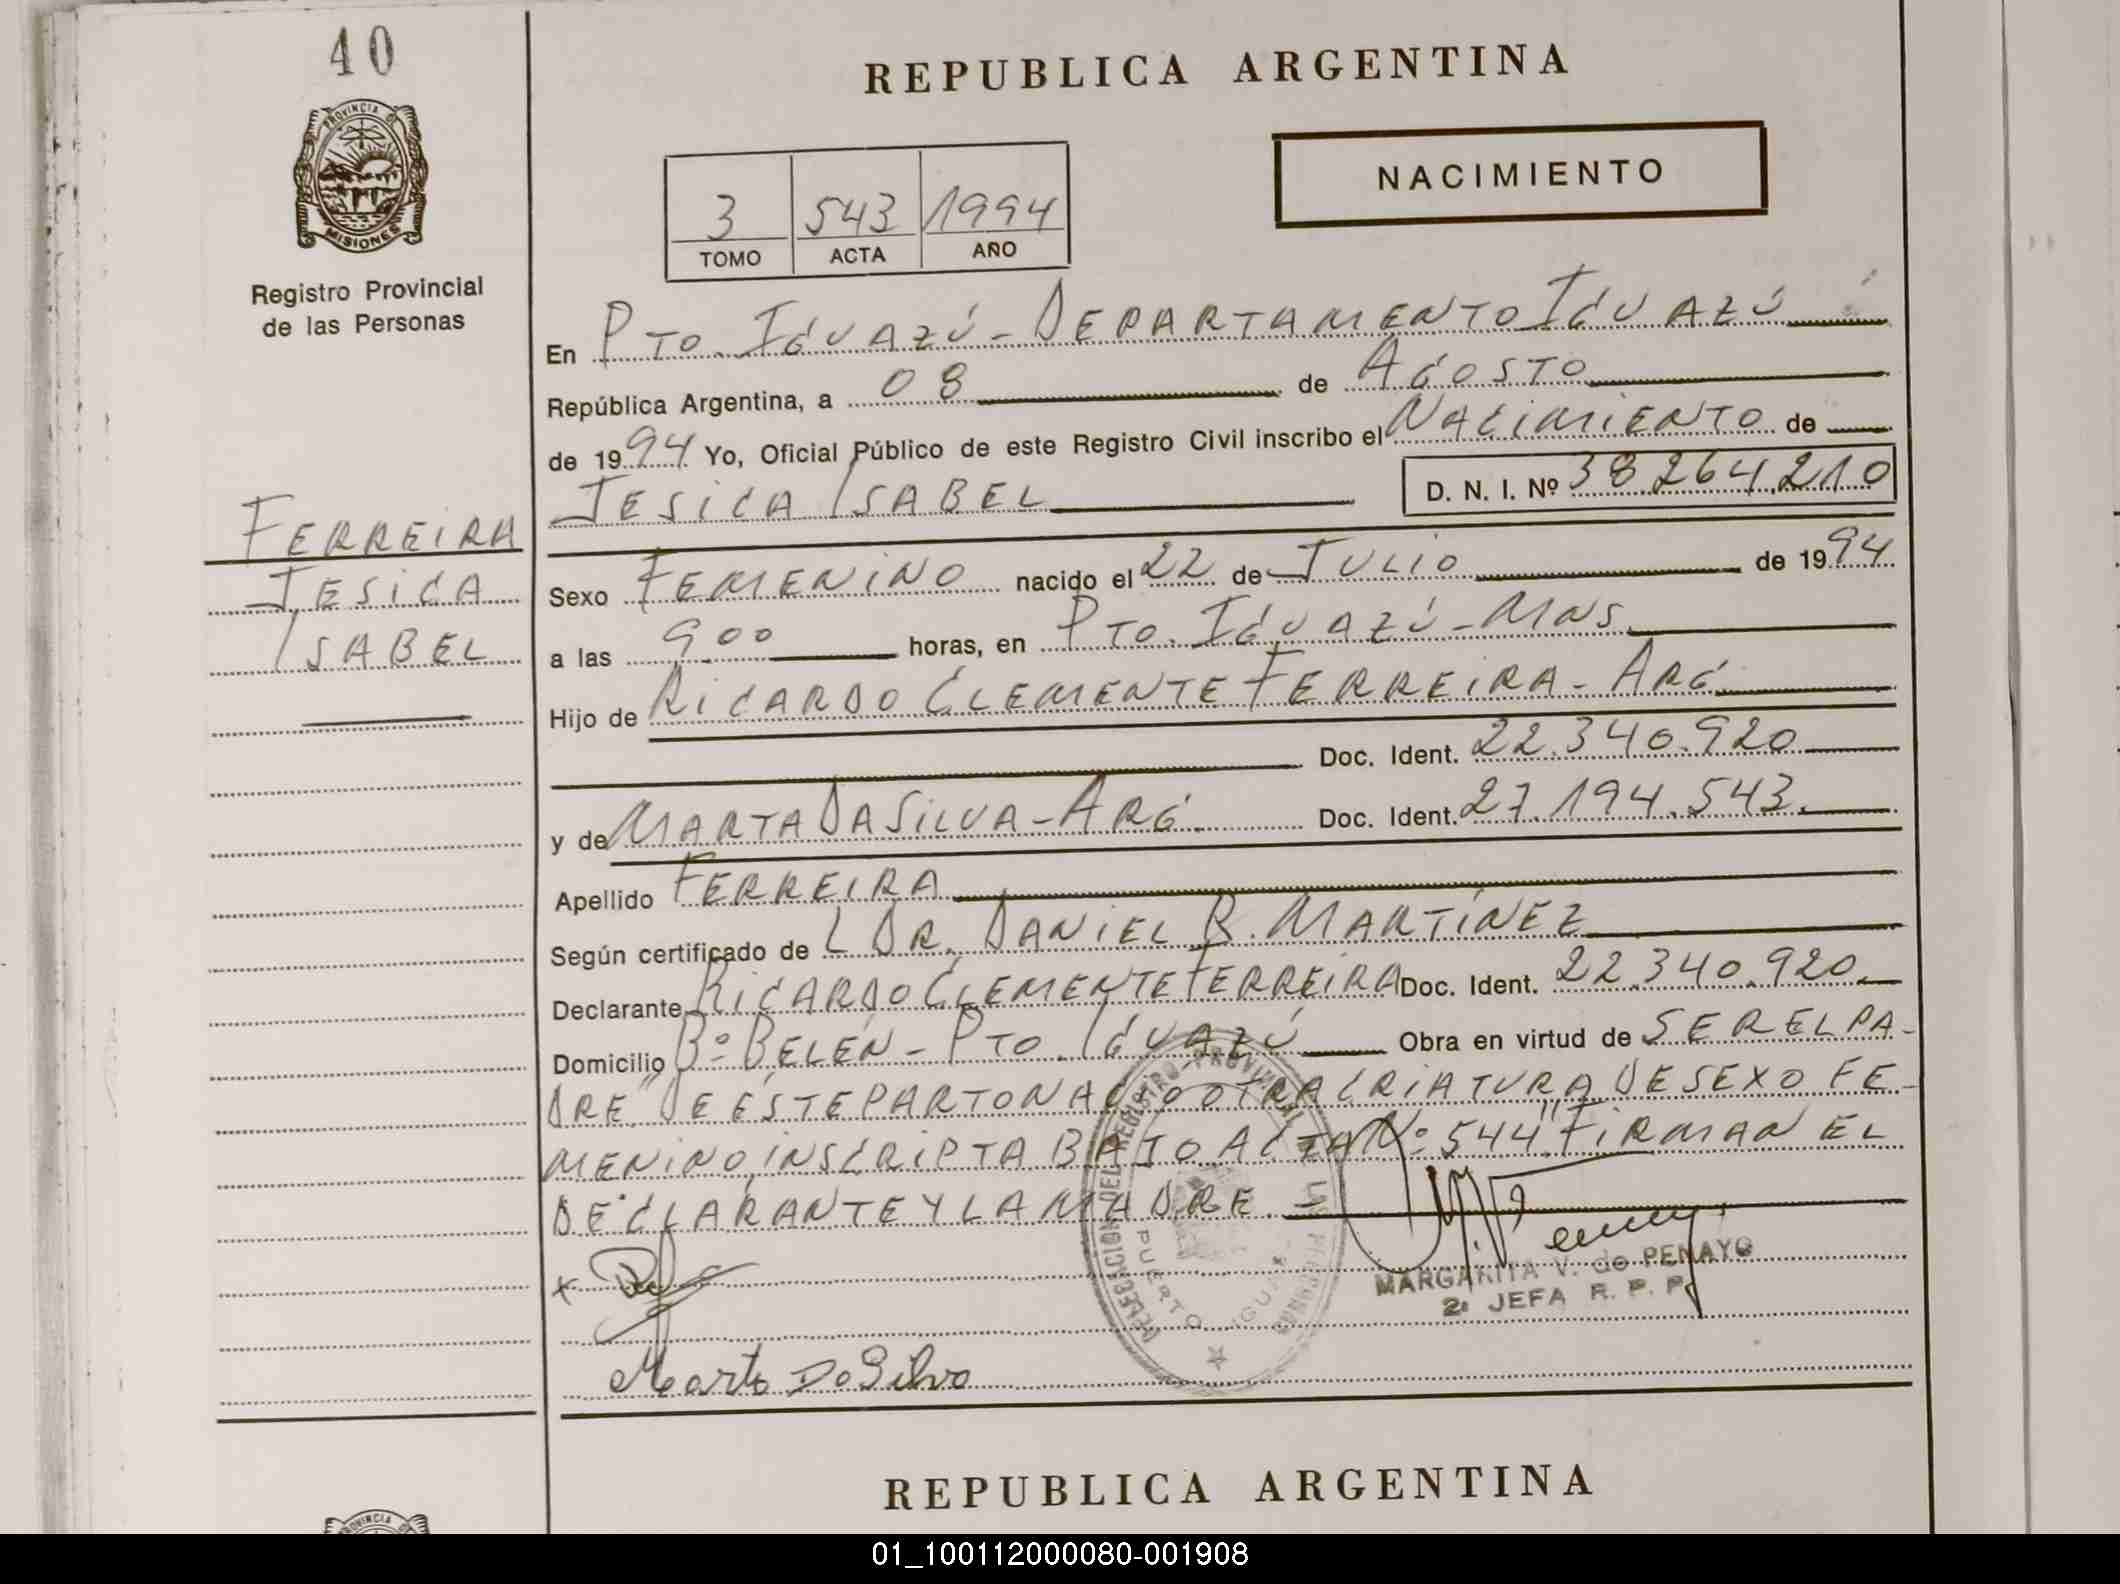 40
PROVINCIA D
MISIONES
Registro Provincial
de las Personas
FERREIRA
JESICA
ISABEL
REPUBLICA ARGENTINA
NACIMIENTO
3 543 1994
TOMO ACTA AÑO
En PTO. IGUAZÚ - DEPARTAMENTO IGUAZÚ
República Argentina, a 08 de AGOSTO
de 1994 Yo, Oficial Público de este Registro Civil inscribo el NACIMIENTO de
JESICA ISABEL D. N. I. Nº 38.264.210
Sexo FEMENINO nacido el 22 de JULIO de 1994
a las 9 00 horas, en PTO. IGUAZÚ - MNS.
Hijo de RICARDO CLEMENTE FERREIRA - ARG
Doc. Ident. 22.340.920
y de MARTA DA SILVA - ARG. Doc. Ident. 27.194.543.
Apellido FERREIRA
Según certificado de L DR. DANIEL R. MARTÍNEZ
Declarante RICARDO CLEMENTE FERREIRA Doc. Ident. 22.340.920.
Domicilio Bº BELÉN - PTO. IGUAZÚ Obra en virtud de SER EL PA-
DRE "DE ÉSTE PARTO NACIÓ OTRA CRIATURA DE SEXO FE-
MENINO INSCRIPTA BAJO ACTA Nº 544" FIRMAN EL
DECLARANTE Y LA MADRE. -
DELEGACION DEL REGISTRO PROVINCIAL DE LAS PERSONAS
PUERTO IGUAZU
MARGARITA V. de PENAYO
2ª JEFA R. P. P.
x
Marta Da Silva
REPUBLICA ARGENTINA
PROVINCIA D
01_100112000080-001908